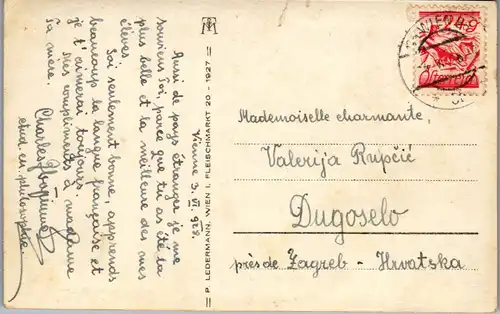 Vienne 3. VI 928.
Aussi de pays étranger je me
souviens Toi, parce que tu as été la
plus belle et la meilleure des mes
élèves.
Soi seulement bonne, apprends
beaucoup la langue française et
je t'aimerai toujours.
Mes compliments à madame
ta mère.
Charles
etud. en philosophie.
P. LEDERMANN, WIEN I. FLEISCHMARKT 20 - 1927
WIEN
Mademoiselle charmante,
Valerija Rupčić
Dugoselo
près de Zagreb - Hrvatska